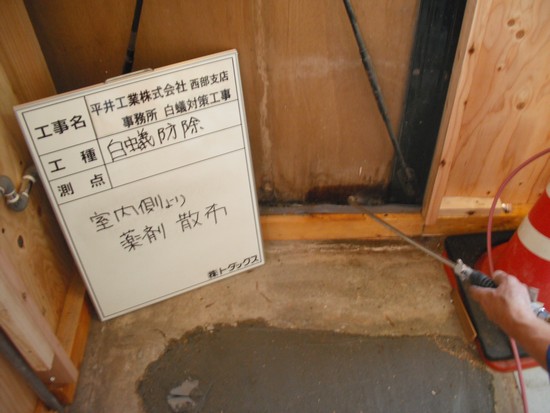 工事名 平井工業株式会社 西部支店
事務所 白蟻対策工事
工種 白蟻防除
測点
室内側より
薬剤 散布
㈱トダックス